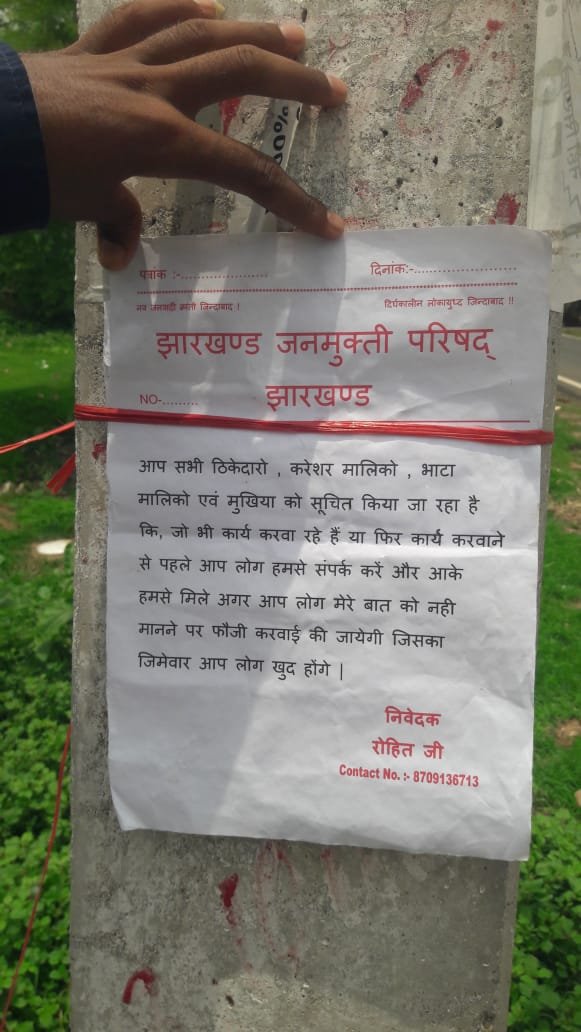 100%
पत्रांक :-.....................
दिनांक:-........................
नव जनवादी क्रांती जिन्दाबाद !
दिर्घकालीन लोकयुध्द जिन्दाबाद !!
झारखण्ड जनमुक्ती परिषद्
झारखण्ड
NO-.........
आप सभी ठिकेदारो , करेशर मालिको , भाटा
मालिको एवं मुखिया को सूचित किया जा रहा है
कि, जो भी कार्य करवा रहे हैं या फिर कार्य करवाने
से पहले आप लोग हमसे संपर्क करें और आके
हमसे मिले अगर आप लोग मेरे बात को नही
मानने पर फौजी करवाई की जायेगी जिसका
जिमेवार आप लोग खुद होंगे |
निवेदक
रोहित जी
Contact No. :- 8709136713